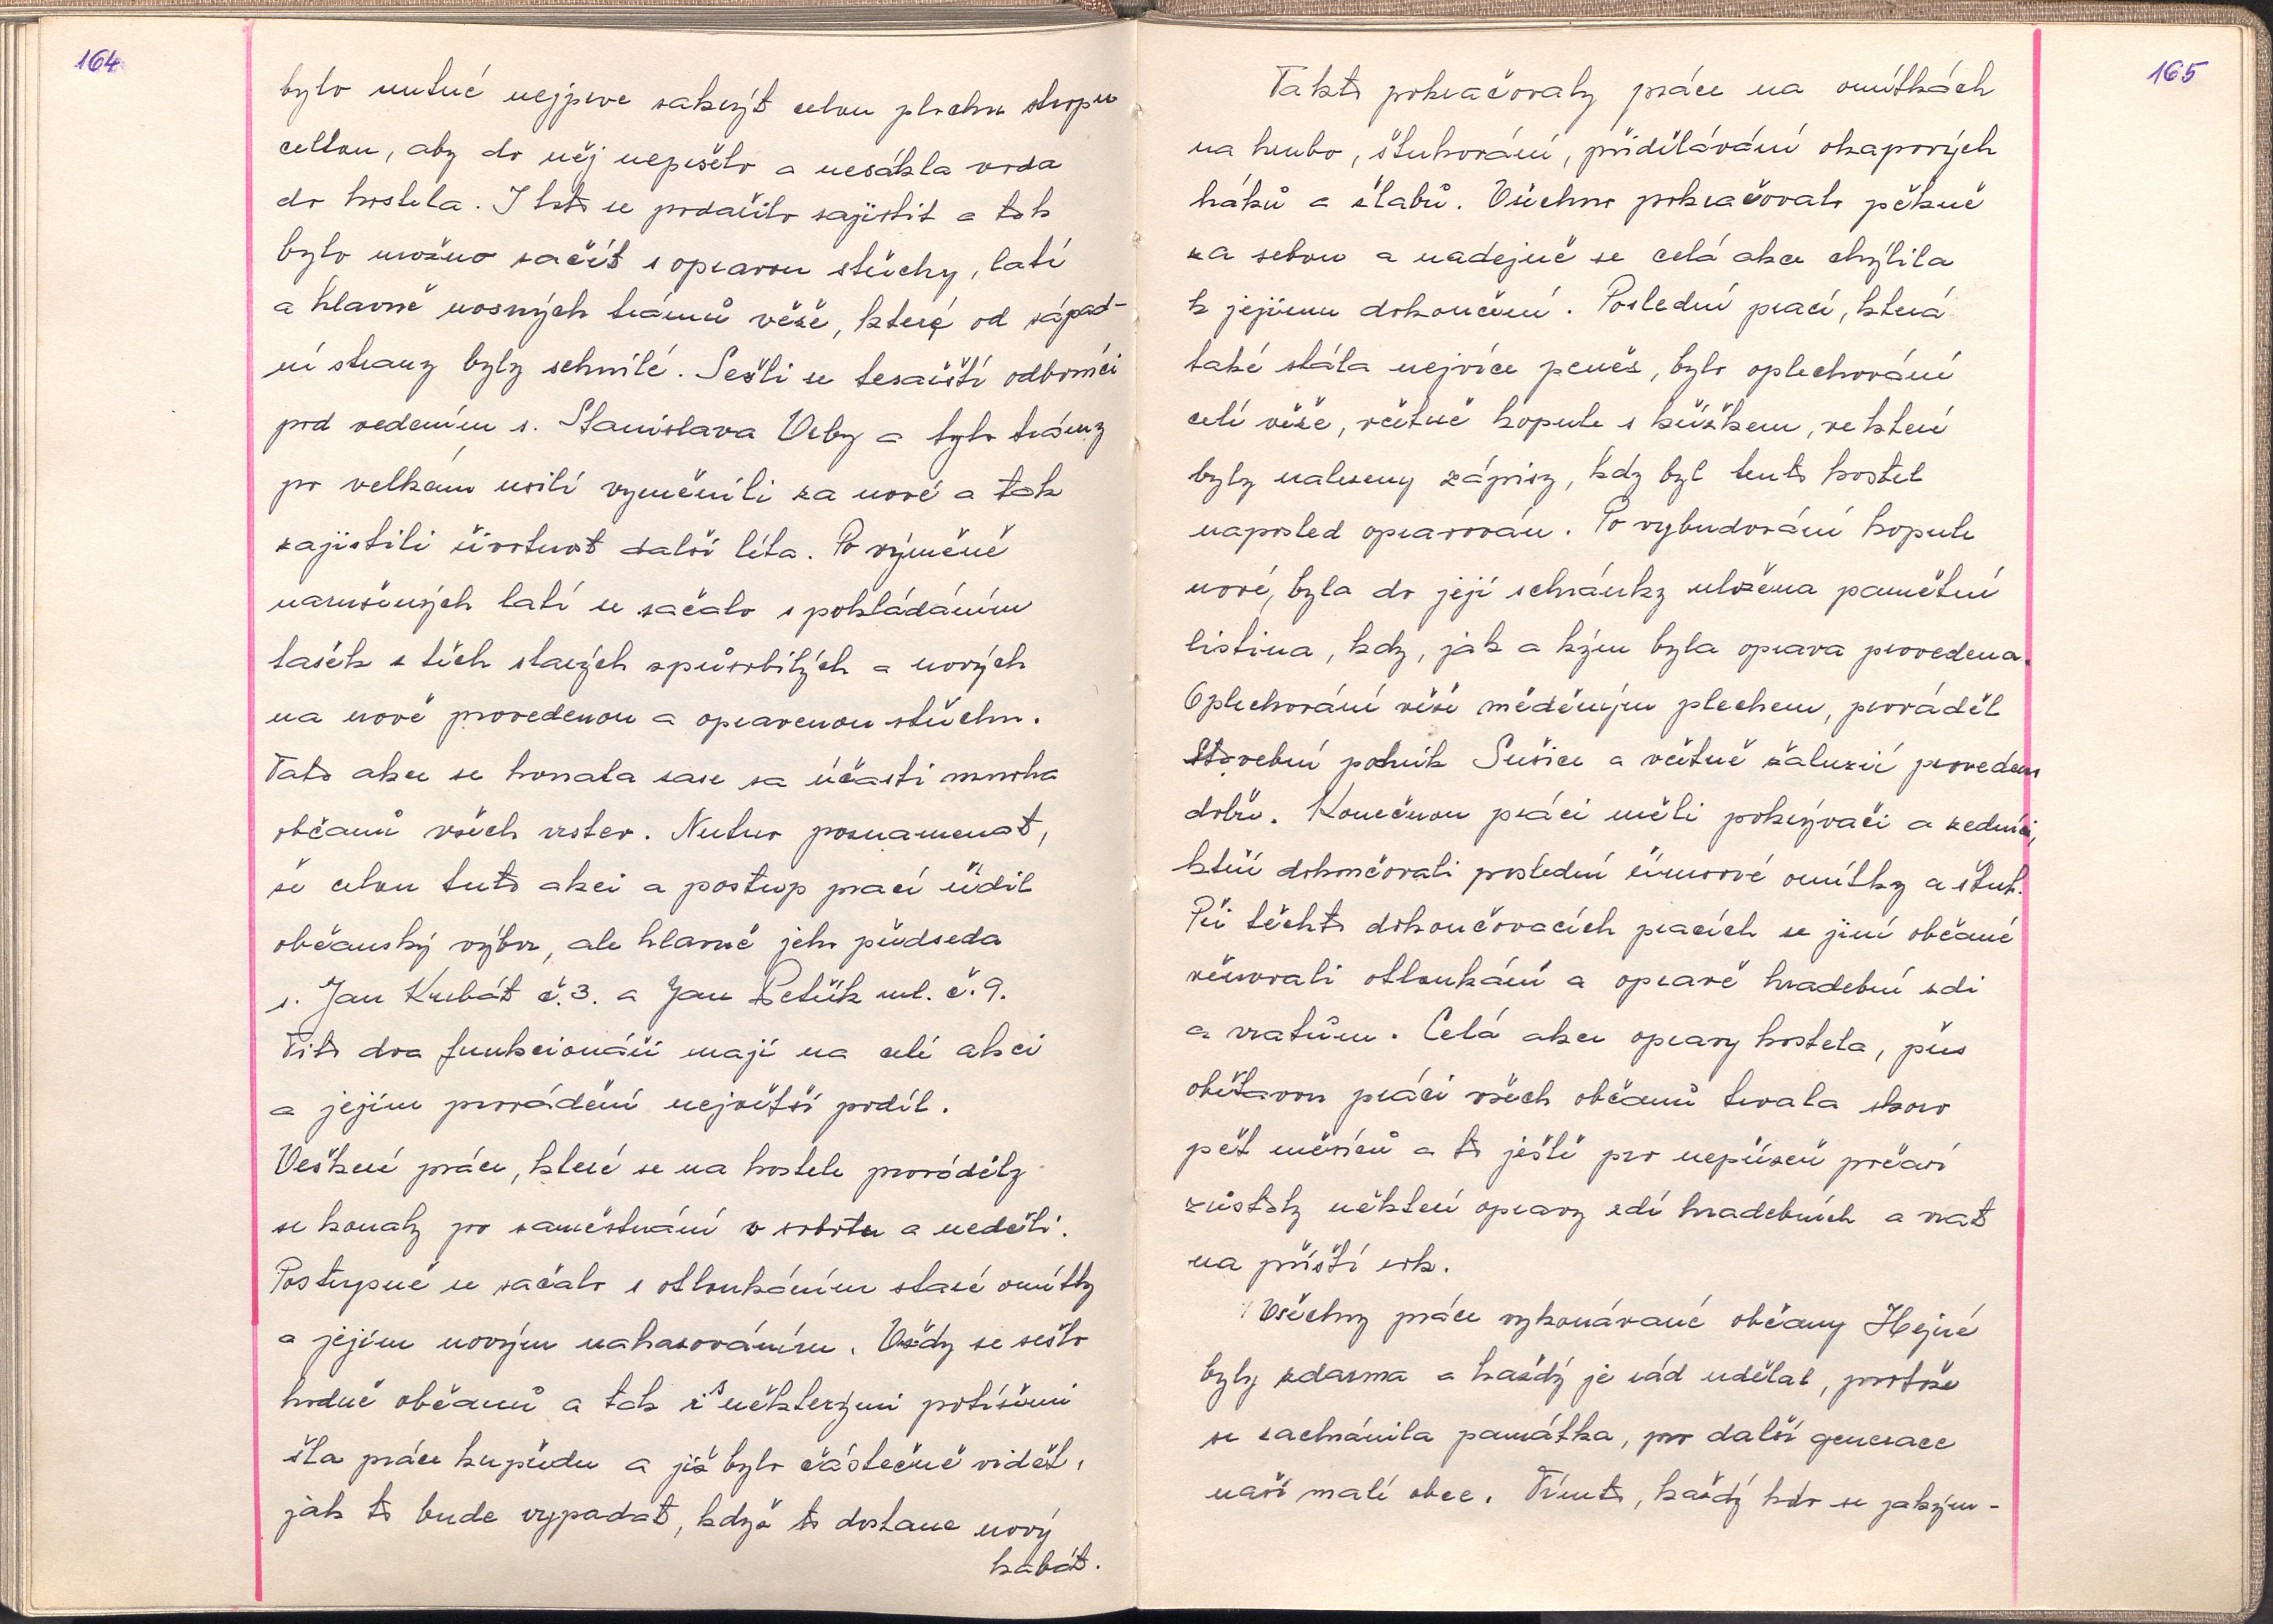 164
bylo nutné nejprve zakrýt celou plochu stropu
celtou, aby do něj nepršelo a nesákla voda
do kostela. I toto se podařilo zajistit a tak
bylo možno začít s opravou střechy, latí
a hlavně nosných trámů věže, které od západ-
ní strany byly schnilé. Sešli se tesařští odborníci
pod vedením s. Stanislava Vrby a tyto trámy
po velkém usilí vyměnili za nové a tak
zajistili životnost další léta. Po výměně
narušených latí se začalo s pokládáním
tašek z těch starých způsobilých a nových
na nově provedenou a opravenou střechu.
Tato akce se konala zase za účasti mnoha
občanů všech vrstev. Nutno poznamenat,
že celou tuto akci a postup prací řídil
občanský výbor, ale hlavně jeho předseda
s. Jan Kubát č. 3. a Jan Petřík ml. č. 9.
Tito dva funkcionáři mají na celé akci
a jejím provádění největší podíl.
Veškeré práce, které se na kostele prováděly
se konaly po zaměstnání v sobotu a neděli.
Postupně se začalo s otloukáním staré omítky
a jejím novým nahazováním. Vždy se sešlo
hodně občanů a tak i s některými potížemi
šla práce kupředu a již bylo částečně vidět,
jak to bude vypadat, když to dostane nový
kabát.
165
Takto pokračovaly práce na omítkách
na hrubo, štukování, přidělávání okapových
háků a žlabů. Všechno pokračovalo pěkně
za sebou a nadějně se celá akce chýlila
k jejímu dokončení. Poslední prací, která
také stála nejvíce peněz, bylo oplechování
celé věže, včetně kopule s křížkem, ve které
byly nalezeny zápisy, kdy byl tento kostel
naposled opravován. Po vybudování kopule
nové, byla do její schránky uložena pamětní
listina, kdy, jak a kým byla oprava provedena.
Oplechování věže měděným plechem, prováděl
Stavební podnik Sušice a včetně žaluzií provedeno
dobře. Konečnou práci měli pokrývači a zedníci,
kteří dokončovali poslední římsové omítky a štuk.
Při těchto dokončovacích pracích se jiní občané
věnovali otloukání a opravě hradební zdi
a vratům. Celá akce opravy kostela, přes
obětavou práci všech občanů trvala skoro
pět měsíců a to ještě pro nepřízeň počasí
zůstaly některé opravy zdí hradebních a vrat
na příští rok.
Všechny práce vykonávané občany Hejné
byly zdarma a každý je rád udělal, protože
se zachránila památka, pro další generace
naší malé obce. Tímto, každý kdo se jakým-